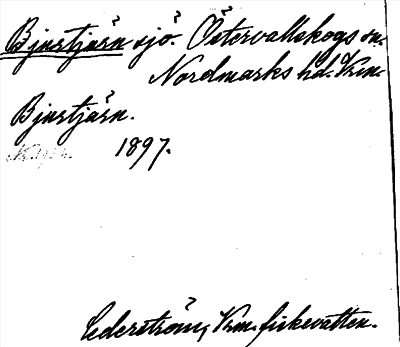 Bjurtjärn sjö. Östervallskogs sn.
Nordmarks hd. Vrm.
Bjurtjärn.
1897.
Cederström, Vrm. fiskevatten.